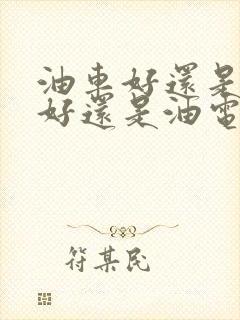 油車好還是
好還是油電
符某民